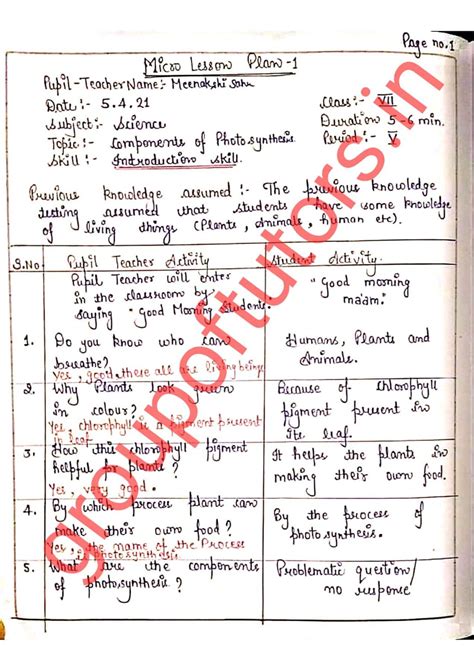 Page no. 1
Micro Lesson Plan -1
Pupil-Teacher Name:- Meenakshi Sahu
Date :- 5.4.21
Class:- VII
Subject:- Science
Duration 5-6 min.
Topic:- Components of Photosynthesis.
Period:- V
Skill:- Introduction skill.
Previous knowledge assumed :- The previous knowledge
testing assumed that students have some knowledge
of living things (Plants, Animals, human etc).
S.No
Pupil Teacher Activity
Student Activity
Pupil Teacher will enter
in the classroom by
saying "Good Morning Students."
"Good morning
ma'am."
1.
Do you know who can
breathe?
Yes, good, these all are living beings
Humans, Plants and
Animals.
2.
Why Plants look green
in colour?
Yes, chlorophyll is a pigment present
in leaf
Because of chlorophyll
pigment present in
its leaf.
3.
How this chlorophyll pigment
helpful for plants?
Yes, very good.
It helps the plants in
making their own food.
4.
By which process plant can
make their own food?
Yes, the name of the Process
is photosynthesis.
By the process of
photosynthesis.
5.
What are the components
of photosynthesis?
Problematic question/
no response
groupoftutors.in